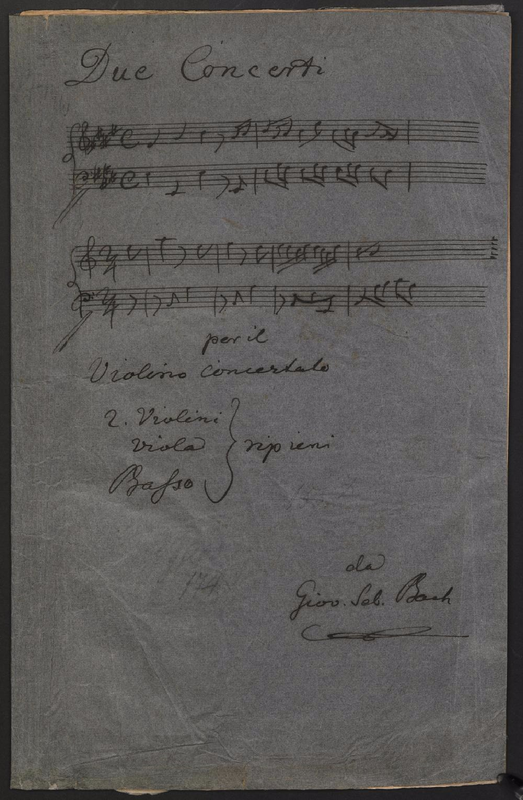 Due Concerti
per il
Violino concertato
2. Violini
Viola
ripieni
Basso
da
Giov. Seb. Bach